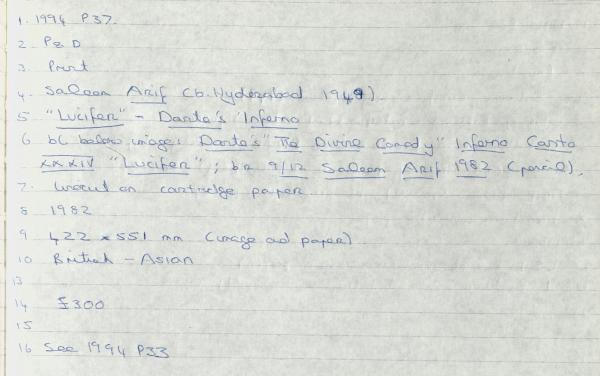 1. 1994 P37.
2 P & D
3 Print
4. Saleem Arif (b. Hyderabad 1949)
5 "Lucifer" - Dante's Inferno
6 bl below image: Dante's "The Divine Comedy" Inferno Canto
XXXIV "Lucifer"; br 9/12 Saleem Arif 1982 (pencil).
7. Linocut on cartridge paper
8 1982
9 422 x 551 mm (image and paper)
10 British - Asian
13
14 £300
15
16 See 1994 P33